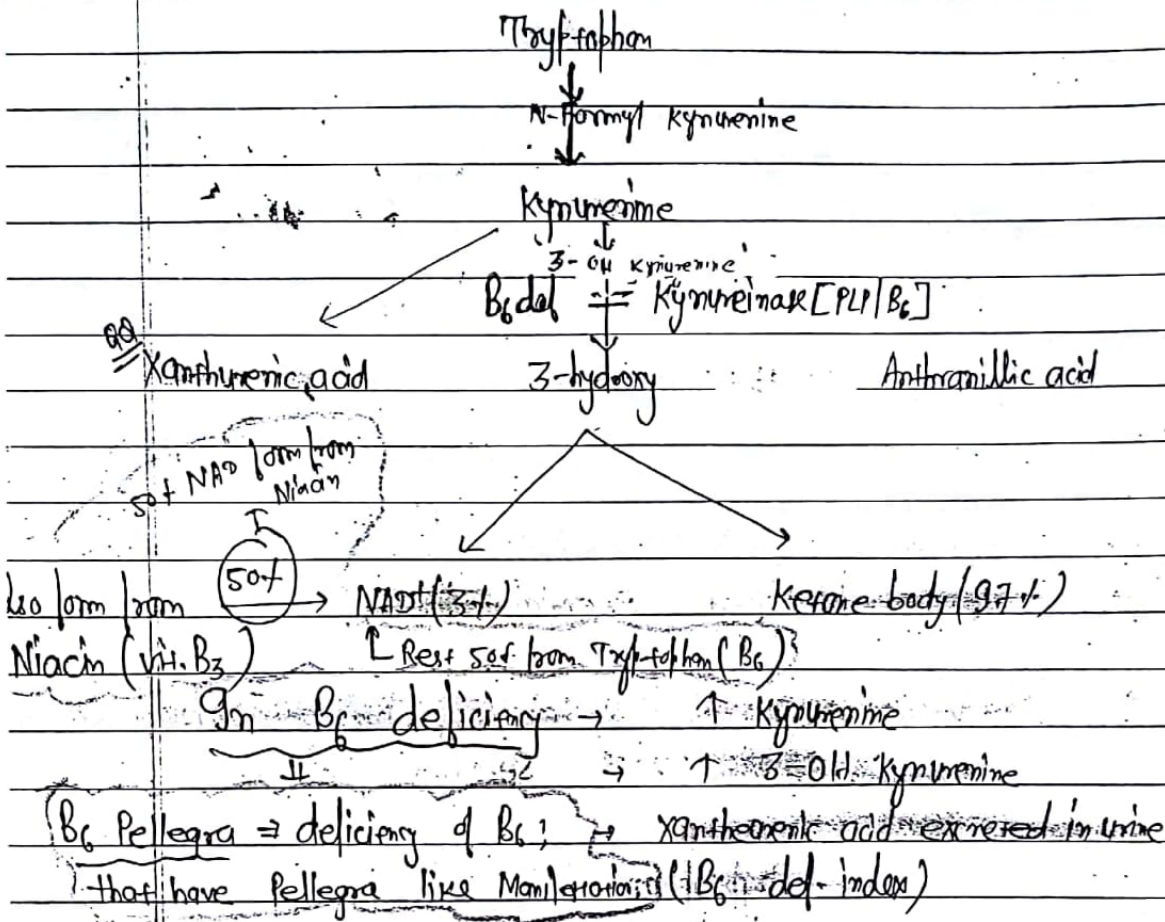 Tryptophan
N-Formyl Kynurenine
Kynurenine
3-OH Kynurenine
B6 def Kynureinase [PLP/B6]
Xanthurenic acid 3-hydroxy Anthranillic acid
50% NAD form from
Niacin
Also form from 50% → NAD+ (3%) Ketone body (97%)
Niacin (vit. B3) Rest 50% from Tryptophan (B6)
In B6 deficiency → ↑ Kynurenine
→ ↑ 3-OH Kynurenine
B6 Pellegra ⇒ deficiency of B6; → Xantheurenic acid excreted in urine
that have Pellegra like Manifestation; (B6 def. index)